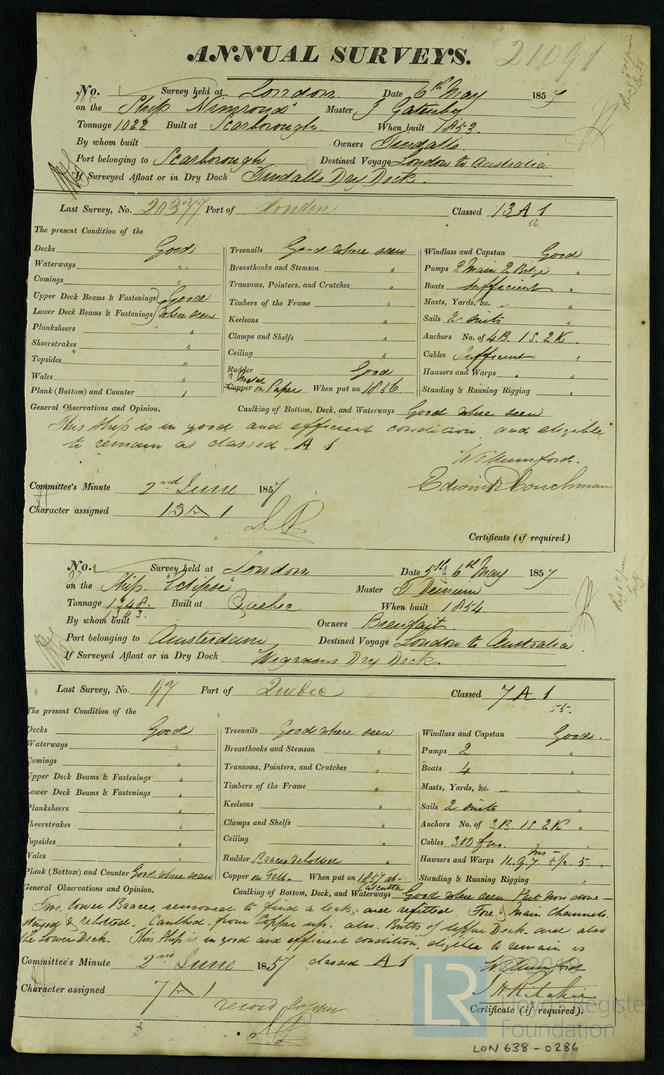 21091
ANNUAL SURVEYS.
No. Survey held at London Date 6th May 1857
on the Ship "Nimrond" Master J Gatenby
Tonnage 1022 Built at Scarborough When built 1853.
By whom built Owners Tindalls
Port belonging to Scarborough Destined Voyage London to Australia
If Surveyed Afloat or in Dry Dock Tindalls Dry Dock.
Last Survey, No. 20377 Port of London Classed 13 A 1
The present Condition of the
Decks Good Treenails Good where seen Windlass and Capstan Good
Waterways " Breasthooks and Stemson " Pumps 2 Main 2 Bilge "
Comings " Transoms, Pointers, and Crutches " Boats Sufficient "
Upper Deck Beams & Fastenings Good Timbers of the Frame " Masts, Yards, &c. "
Lower Deck Beams & Fastenings where seen Keelsons " Sails 2 suits "
Planksheers " Clamps and Shelfs " Anchors No. of 4B. 1S. 2K. "
Sheerstrakes " Ceiling " Cables Sufficient "
Topsides " Rudder Good Hausers and Warps "
Wales " Y Metal
Plank (Bottom) and Counter " Copper on Paper When put on 1856 Standing & Running Rigging "
General Observations and Opinion. Caulking of Bottom, Deck, and Waterways Good where seen
This Ship is in good and efficient condition and eligible
to remain as classed A 1
W. Mumford.
Committee's Minute 2nd June 1857 Edwin R Couchman
Character assigned 13 A 1
Certificate (if required)
No. Survey held at London Date 5th & 6th May 1857
on the Ship "Eclipse" Master
Tonnage 1248. Built at Quebec When built 1854
By whom built Owners
Port belonging to Amsterdam Destined Voyage London to Australia
If Surveyed Afloat or in Dry Dock Wigrams Dry Dock
Last Survey, No. 47 Port of Quebec Classed 7 A 1
55.
The present Condition of the
Decks Good Treenails Good where seen Windlass and Capstan Good.
Waterways " Breasthooks and Stemson " Pumps 2 "
Comings " Transoms, Pointers, and Crutches " Boats 4 "
Upper Deck Beams & Fastenings " Timbers of the Frame " Masts, Yards, &c. "
Lower Deck Beams & Fastenings " Keelsons " Sails 2 suits "
Planksheers " Clamps and Shelfs " Anchors No. of 3B. 1S 2K "
Sheerstrakes " Ceiling " Cables 300 fms. "
Topsides " Rudder Braces Hausers and Warps 11. 9. 7
Wales "
Plank (Bottom) and Counter Good where seen Copper on Felt. When put on 1857 at Calcutta Standing & Running Rigging "
General Observations and Opinion. Caulking of Bottom, Deck, and Waterways Good where seen
lower Braces removed to find a leak, and refitted Fore & Main Channels
& rebolted. Caulked from Copper up. also Butts of upper Deck. and also
the lower Deck. This Ship is in good and efficient condition, eligible to remain as
Committee's Minute 2nd June 1857 classed A 1
W. Mumford
Character assigned 7 A 1
record Copper
Certificate (if required).
LR
© 2019
Lloyd's Register
Foundation
LON 638 - 0286